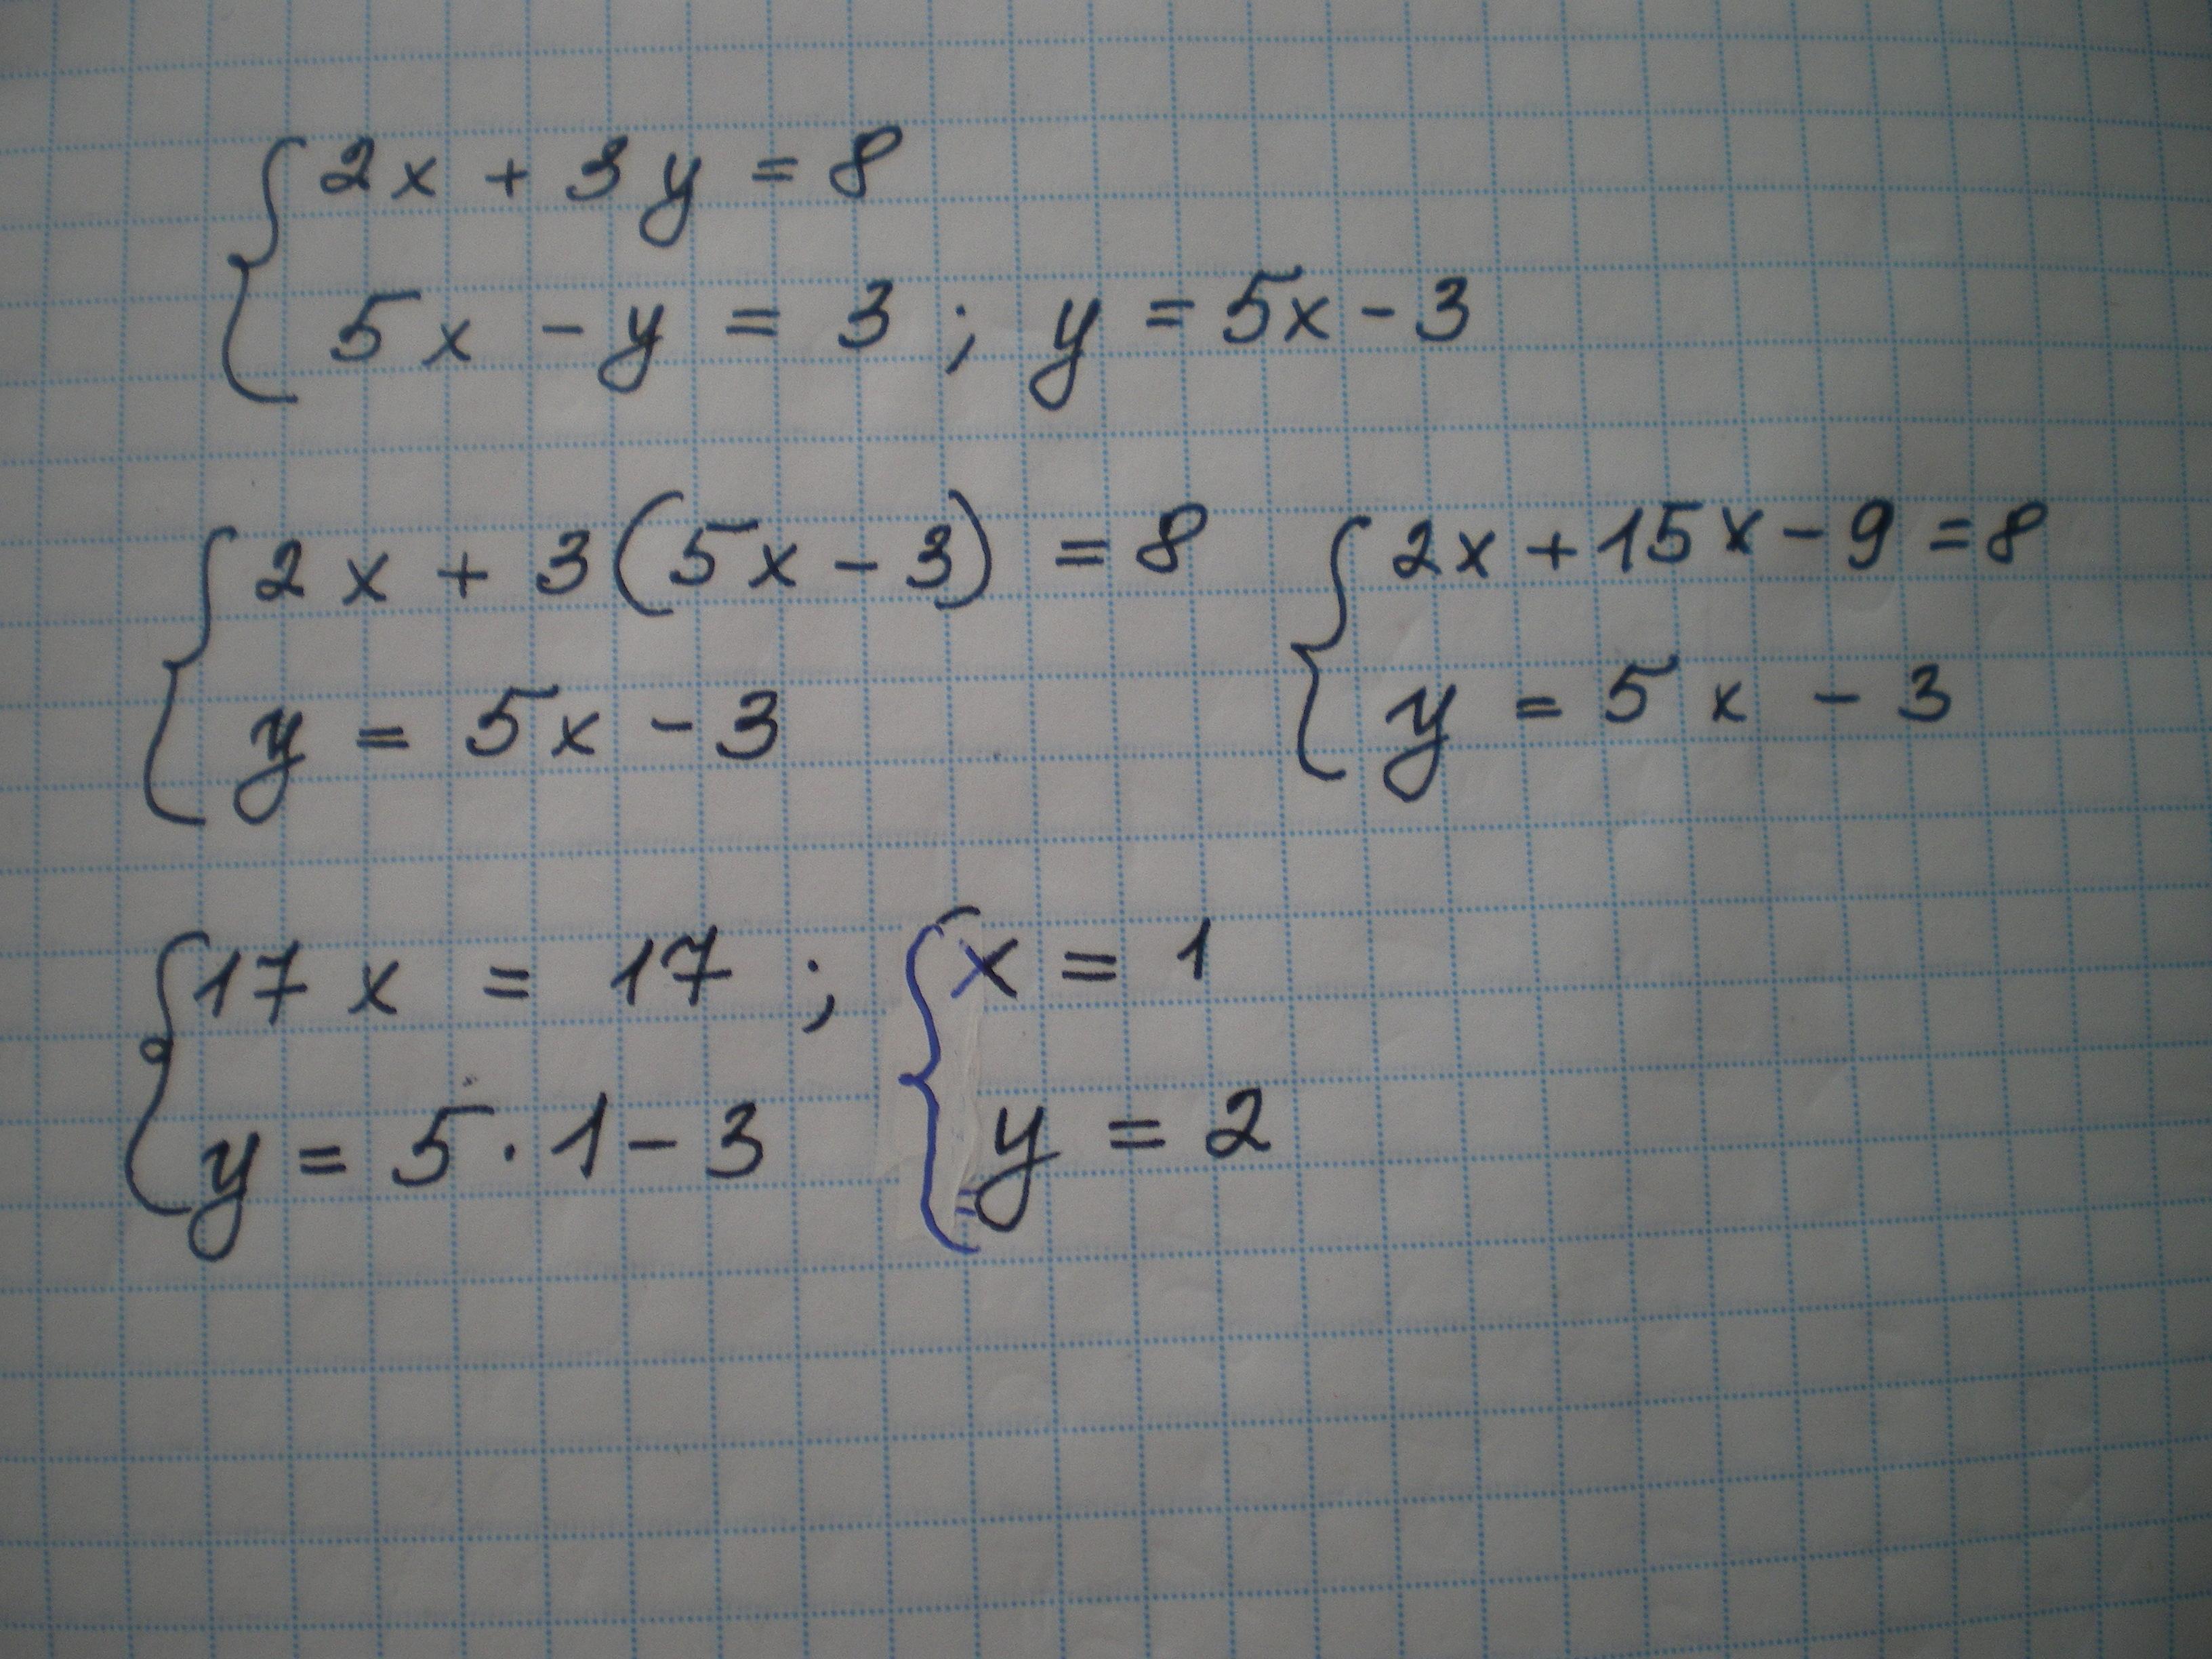 2x + 3y = 8
5x - y = 3 ; y = 5x - 3
2x + 3(5x - 3) = 8
y = 5x - 3
2x + 15x - 9 = 8
y = 5x - 3
17x = 17 ;
y = 5 · 1 - 3
x = 1
y = 2